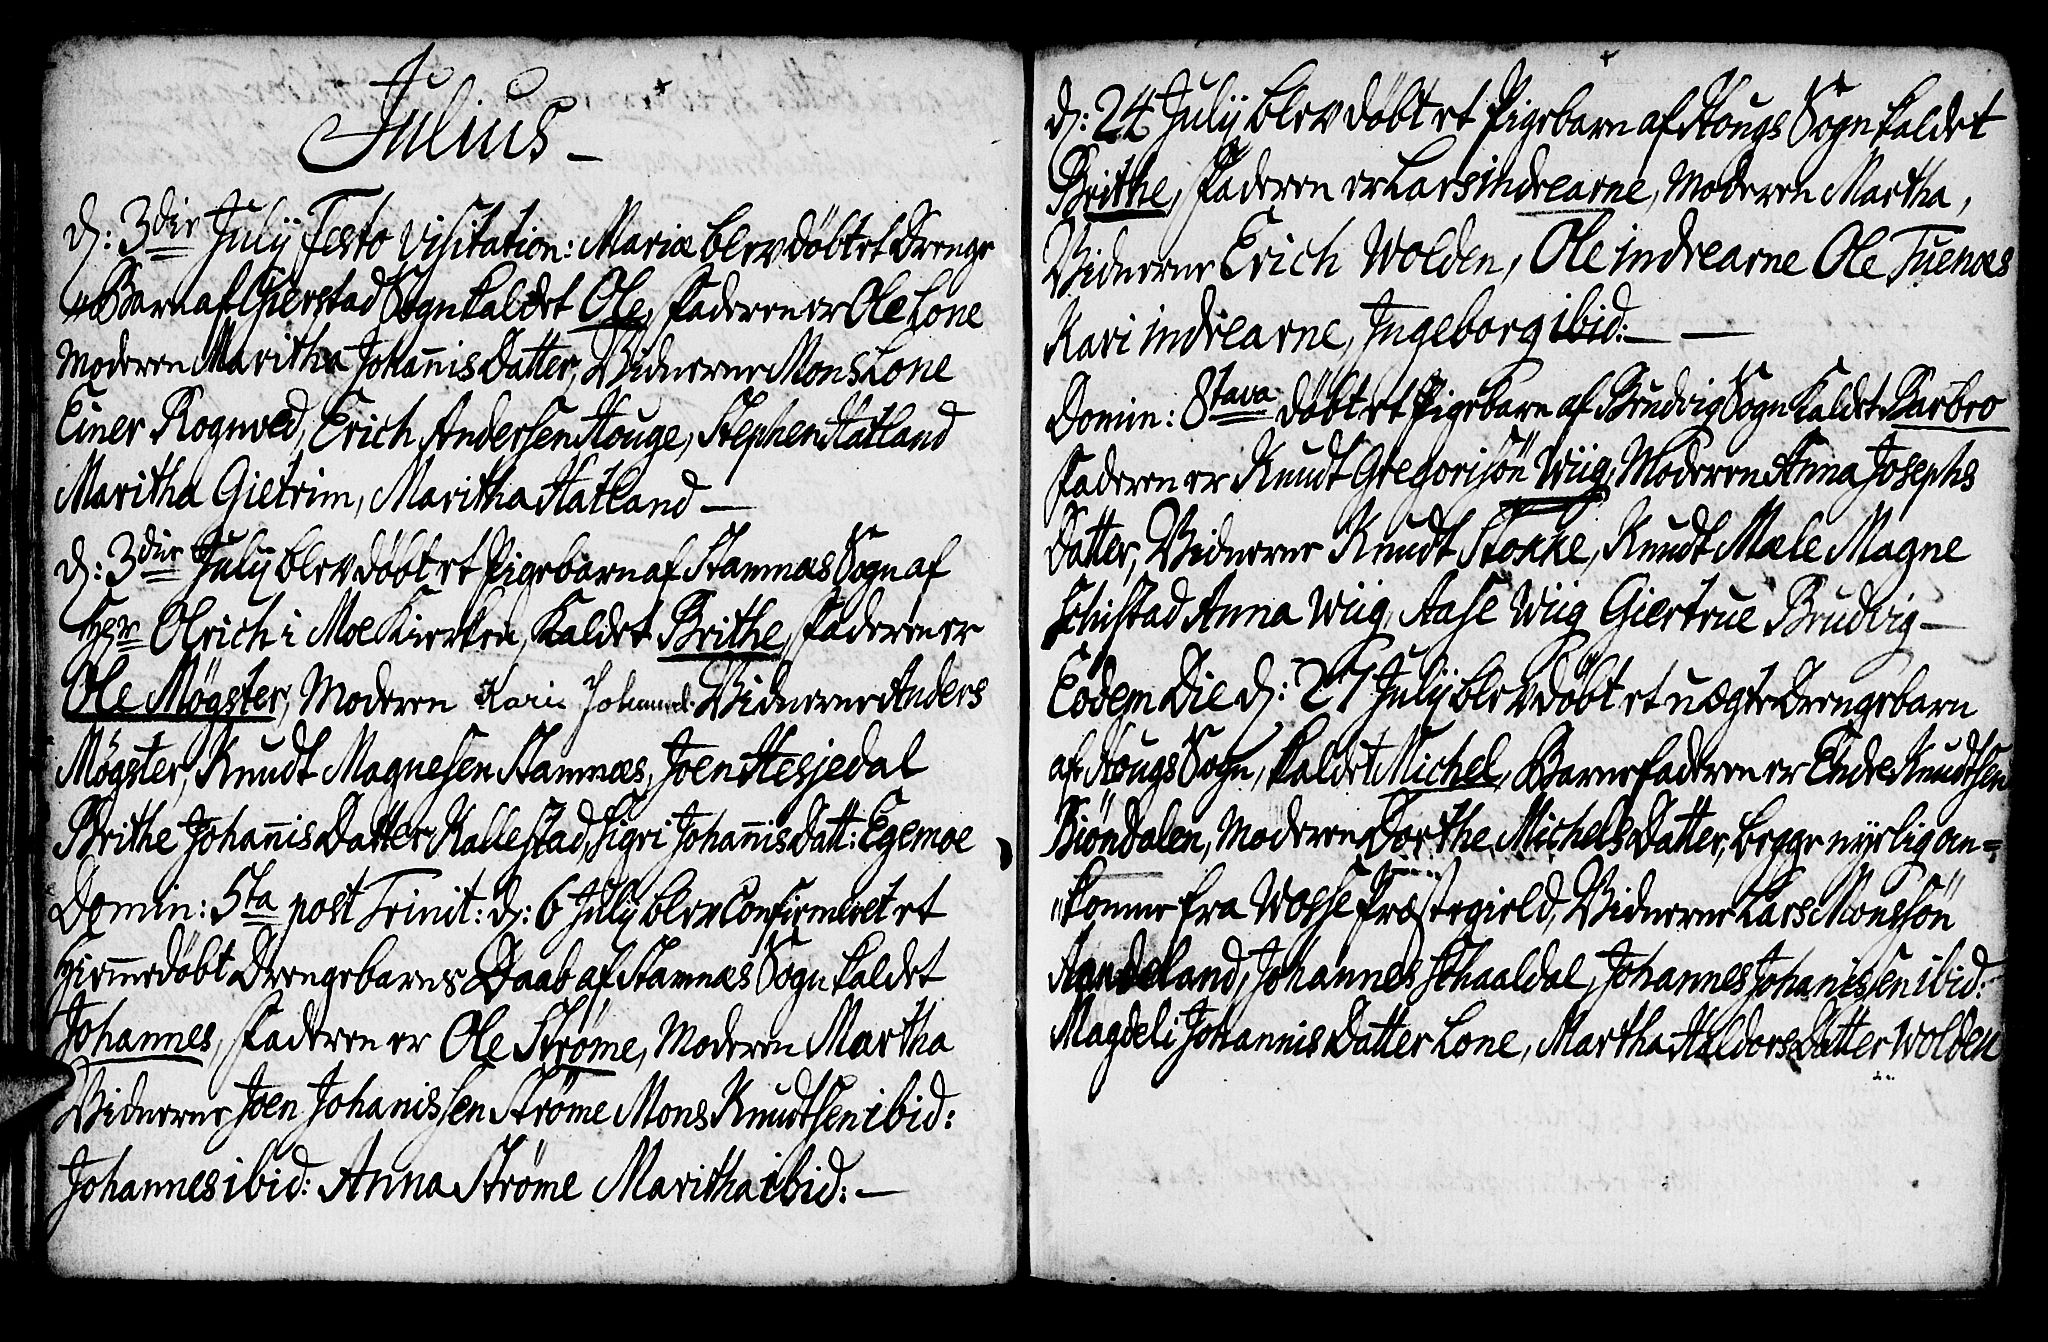 Julius –
d: 3die Julij Festo Visitation: Mariæ blev döbt et Drenge
Barn af Gierstad Sogn kaldet Ole, Faderen er Ole Lone
Moderen Maritha Johannis Datter, Vidnerne Mons Lone
Einer Rognved, Erich Andersen Houge, Stephen Hatland
Maritha Gietrim, Maritha Hatland –
d: 3die Julij blev döbt et Pigebarn af Stamnæs Sogn af
Hr Olrich i Moe Kirken, kaldet Brithe, Faderen er
Ole Møgster, Moderen Kari Johannd. Vidnerne Anders
Møgster, Knudt Magnesen Stamnæs, Joen Hesjedal
Brithe Johannis Datter Kallestad, Sigri Johannis Datt: Egemoe
Domin: 5ta post Trinit: d: 6 Julij blev Confirmeret et
Hiemmedöbt Drengebarns Daab af Stamnæs Sogn kaldet
Johannes, Faderen er Ole Strøme, Moderen Martha
Vidnerne Joen Johanissen Strøme Mons Knudtsen ibid:
Johannes ibid: Anna Strøme Maritha ibid: –
d: 24 Julij blev döbt et Pigebarn af Hougs Sogn kaldet
Brithe, Faderen er Lars indrearne, Moderen Martha,
Vidnerne Erich Wolden, Ole indrearne Ole Tuenæs
Kari indrearne, Ingeborg ibid: –
Domin: 8tava döbt et Pigebarn af Brudvig Sogn kaldet Barbro
Faderen er Knudt Gregorisön Wiig, Moderen Anna Josephs
Datter, Vidnerne Knudt Stokke, Knudt Mæle Magne
Schistad Anna Wiig, Aase Wiig Giertrue Brudvig –
Eodem Die d: 27 Julij blev döbt et uægte Drengebarn
af Hougs Sogn, kaldet Michel, Barnefaderen er Endre Knudtsen
Biöndalen, Moderen Dorthe Michels Datter, begge nyelig an=
komne fra Wosse Præstegield, Vidnerne Lars Monssön
Aandeland, Johannes Schaaldal, Johannes Johanissen ibid:
Magdeli Johannis Datter Lone, Martha Haldors Datter Wolden